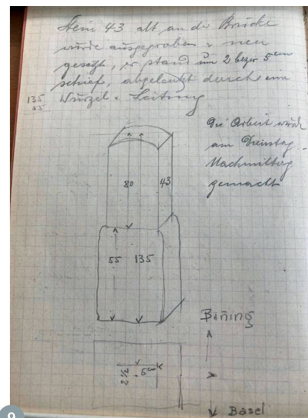 Stein 43 alt an der Brücke
wurde ausgegraben u. neu
gesetzt, er stand um 2 bezw 5 cm
schief, abgelenkt durch ein
Wurzel. Leitung
135
55
Die Arbeit wurde
am Dienstag
Nachmittag
gemacht
80 43
55 135
Bining
5 cm
2
Basel